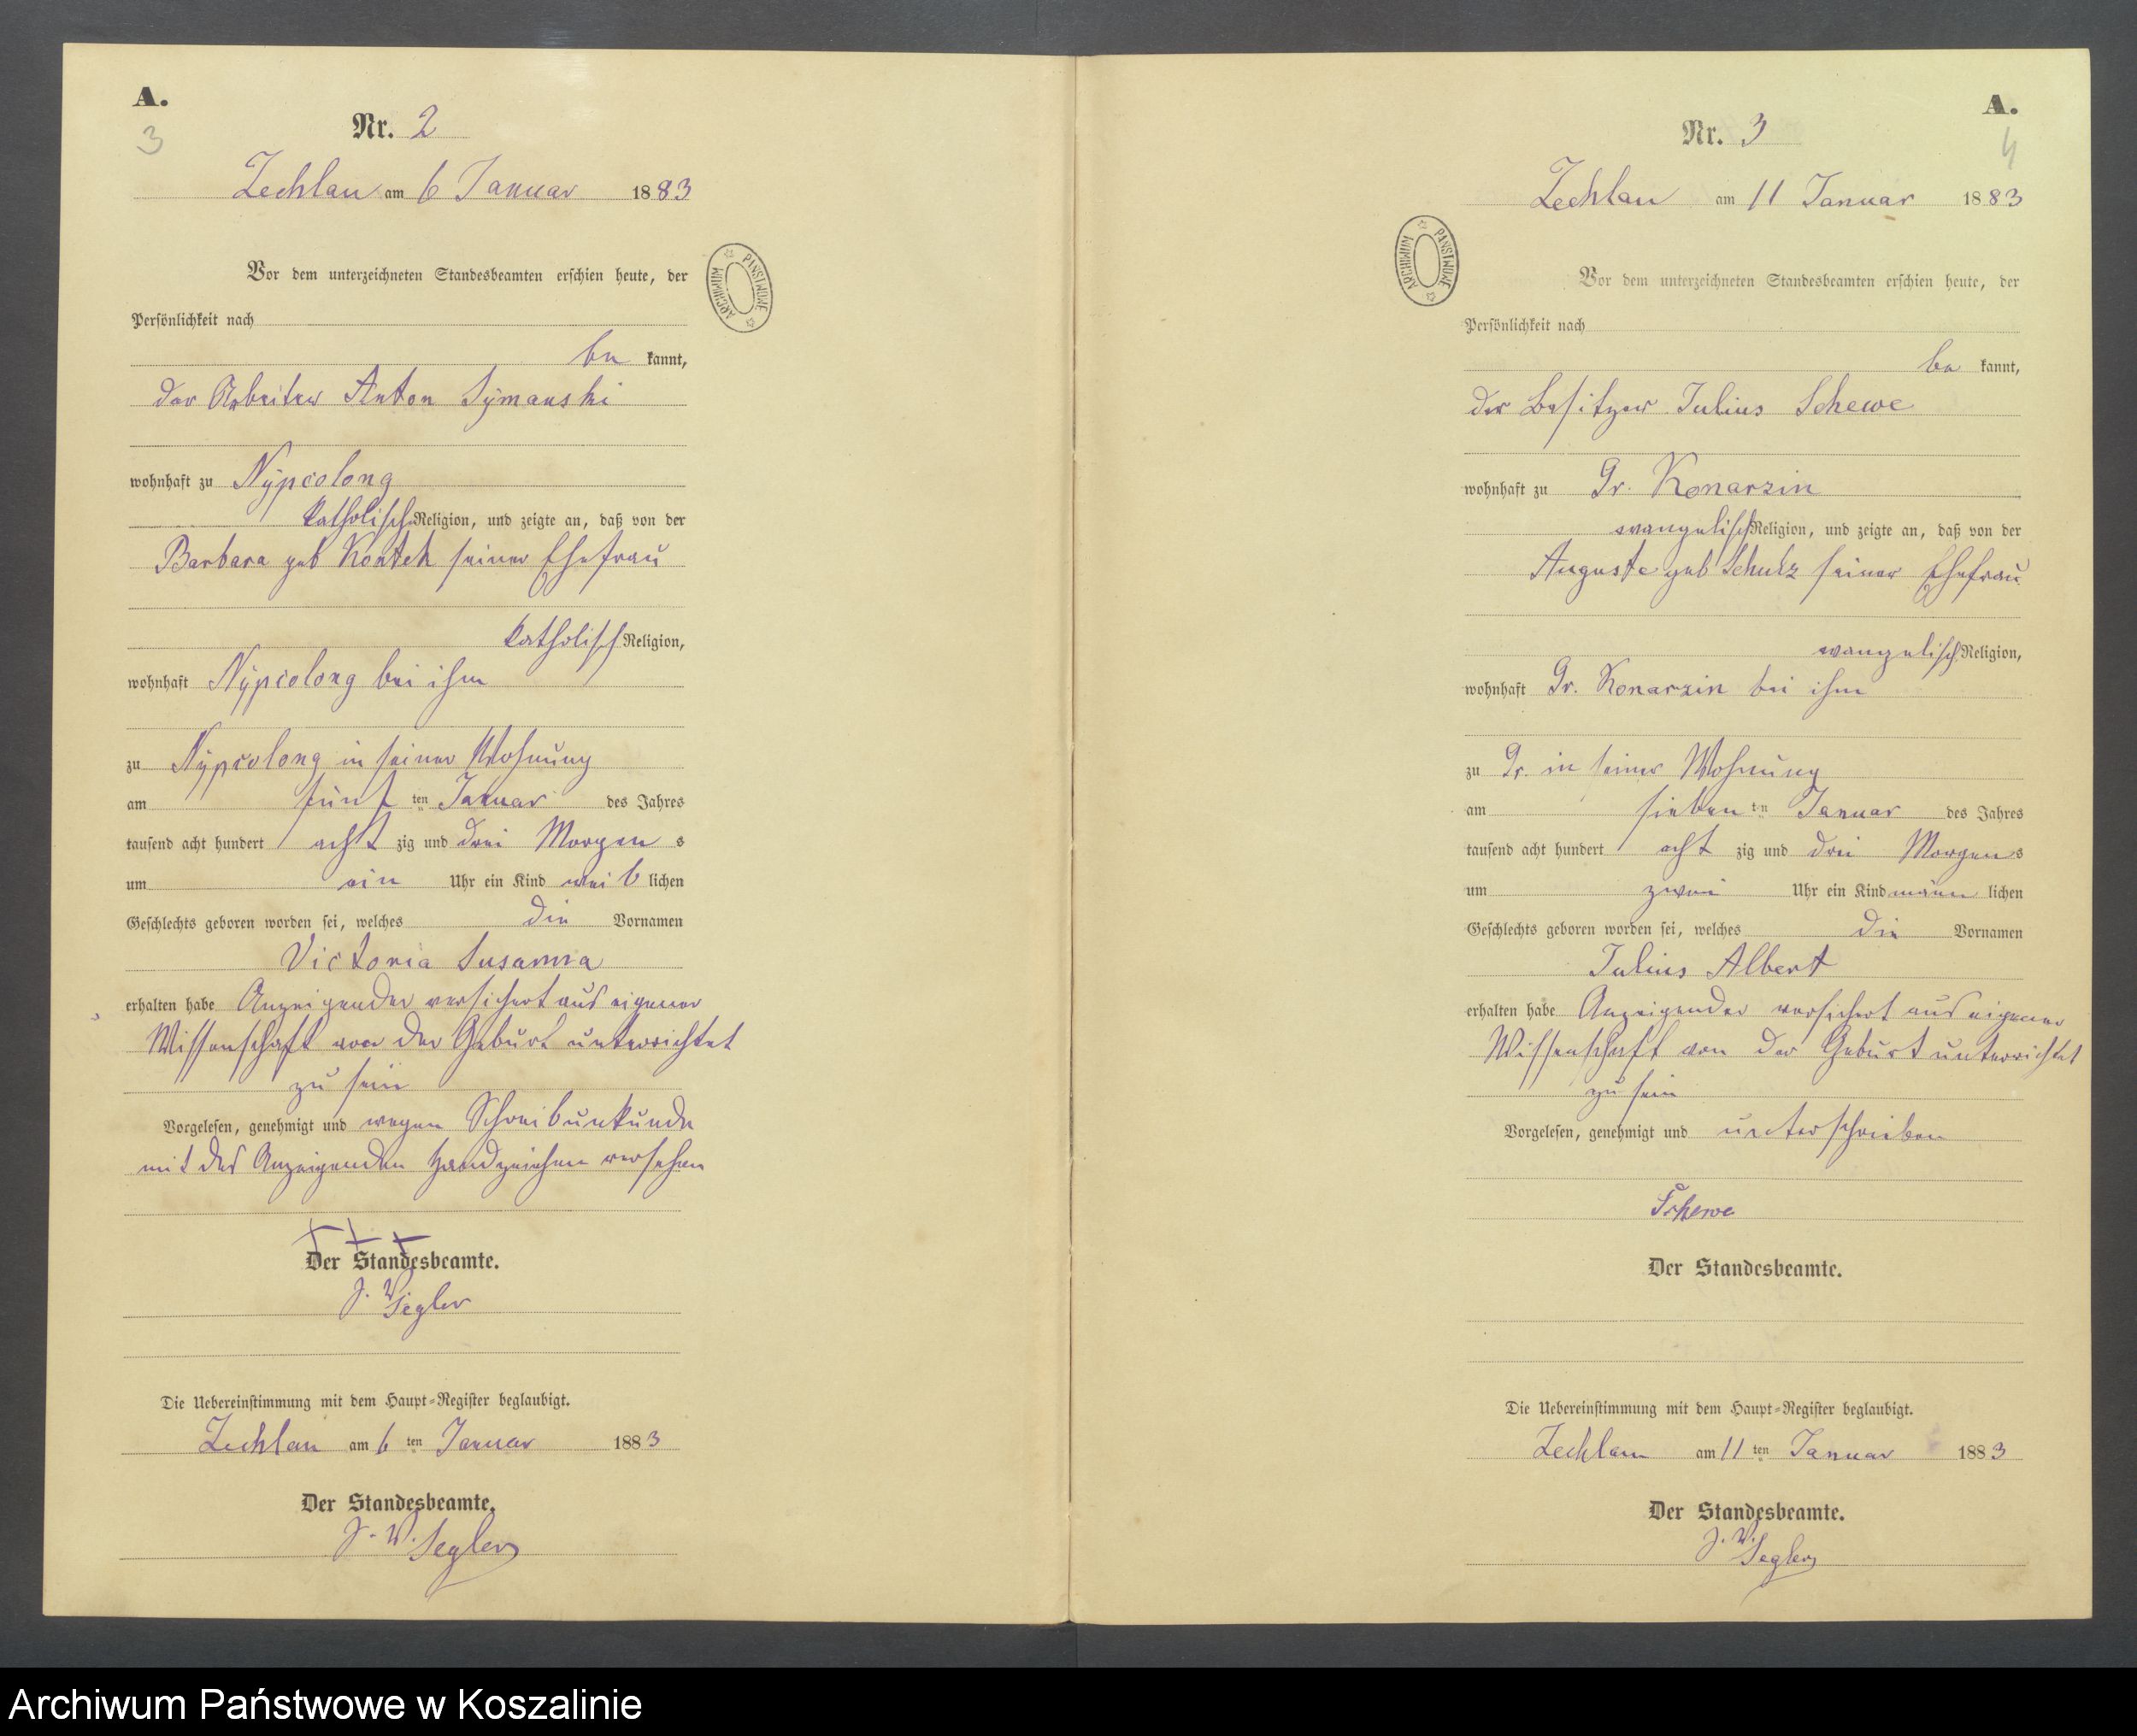 A.
3
Nr. 2
Zechlau am 6 Januar 1883
Vor dem unterzeichneten Standesbeamten erschien heute, der
Persönlichkeit nach
be kannt,
der Arbeiter Anton Sÿmanski
wohnhaft zu Nÿpcolong
katholisch Religion, und zeigte an, daß von der
Barbara geb seiner Ehefrau
katholisch Religion,
wohnhaft Nÿpcolong bei ihm
zu Nÿpcolong in seiner Wohnung
am fünf ten Januar des Jahres
tausend acht hundert acht zig und drei Morgen s
um ein Uhr ein Kind weib lichen
Geschlechts geboren worden sei, welches die Vornamen
Victoria Susanna
erhalten habe Anzeigender versichert aus eigener
Wissenschaft von der Geburt unterrichtet
zu sein
Vorgelesen, genehmigt und wegen Schreibunkunde
mit des Anzeigenden Handzeichen versehen
+ + +
Der Standesbeamte.
J. W Segler
Die Uebereinstimmung mit dem Haupt-Register beglaubigt.
Zechlau am 6 ten Januar 1883
Der Standesbeamte.
J. W. Segler
ARCHIWUM PAŃSTWOWE
A.
4
Nr. 3
Zechlau am 11 Januar 1883
Vor dem unterzeichneten Standesbeamten erschien heute, der
Persönlichkeit nach
be kannt,
der Besitzer Julius Schewe
wohnhaft zu Gr. Konarzin
evangelisch Religion, und zeigte an, daß von der
Auguste geb Schulz seiner Ehefrau
evangelisch Religion,
wohnhaft Gr. Konarzin bei ihm
zu Gr. in seiner Wohnung
am sieben ten Januar des Jahres
tausend acht hundert acht zig und drei Morgens
um zwei Uhr ein Kind männ lichen
Geschlechts geboren worden sei, welches die Vornamen
Julius Albert
erhalten habe Anzeigender versichert aus eigener
Wissenschaft von der Geburt unterrichtet
zu sein
Vorgelesen, genehmigt und unterschrieben
Schewe
Der Standesbeamte.
Die Uebereinstimmung mit dem Haupt-Register beglaubigt.
Zechlau am 11 ten Januar 1883
Der Standesbeamte.
J. W. Segler
ARCHIWUM PAŃSTWOWE
Archiwum Państwowe w Koszalinie